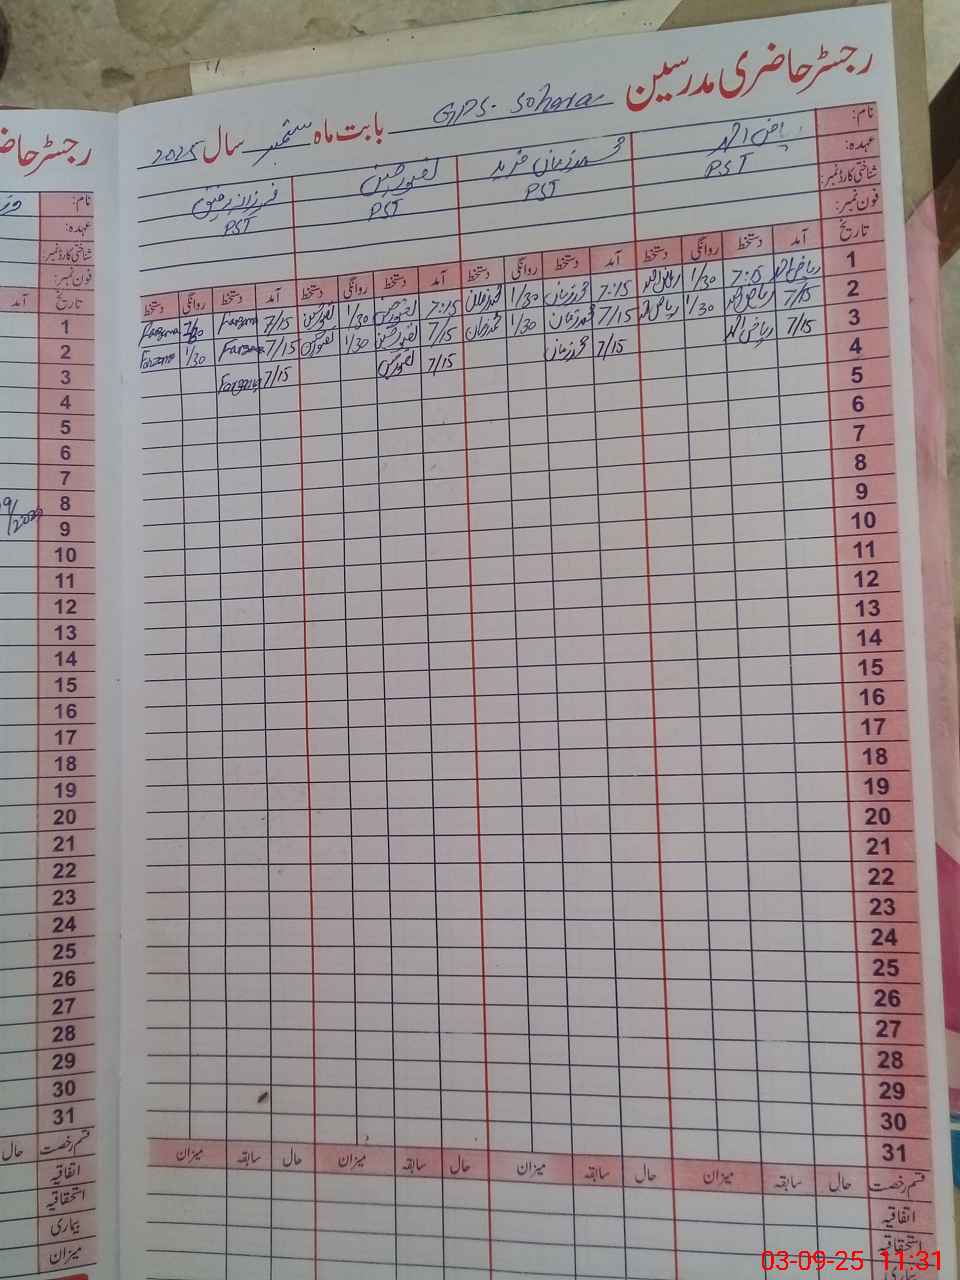 رجسٹر حاضری مدرسین GPS. Sohara بابت ماہ ستمبر سال 2025
نام: ریاض احمد محمد زمان فرید غفور حسین فرزانہ رفیق
عہدہ: PST PST PST PST
شناختی کارڈ نمبر:
فون نمبر:
تاریخ آمد دستخط روانگی دستخط آمد دستخط روانگی دستخط آمد دستخط روانگی دستخط آمد دستخط روانگی دستخط
1 ریاض احمد 7:15 1/30 ریاض احمد 7:15 محمد زمان 1/30 محمد زمان 7:15 غفور حسین 1/30 غفور حسین 7/15 Farzana 1/30 Farzana
2 7/15 ریاض احمد 1/30 ریاض احمد 7/15 محمد زمان 1/30 محمد زمان 7/15 غفور حسین 1/30 غفور حسین 7/15 Farzana 1/30 Farzana
3 7/15 ریاض احمد 7/15 محمد زمان 7/15 غفور حسین 7/15 Farzana
4
5
6
7
8
9
10
11
12
13
14
15
16
17
18
19
20
21
22
23
24
25
26
27
28
29
30
31
قسم رخصت حال سابقہ میزان حال سابقہ میزان حال سابقہ میزان حال سابقہ میزان
اتفاقیہ
استحقاقیہ
رجسٹر حاض
نام:
عہدہ:
شناختی کارڈ نمبر:
فون نمبر:
تاریخ آمد
1
2
3
4
5
6
7
8
9
10
11
12
13
14
15
16
17
18
19
20
21
22
23
24
25
26
27
28
29
30
31
قسم رخصت حال
اتفاقیہ
استحقاقیہ
بیماری
میزان
03-09-25 11:31